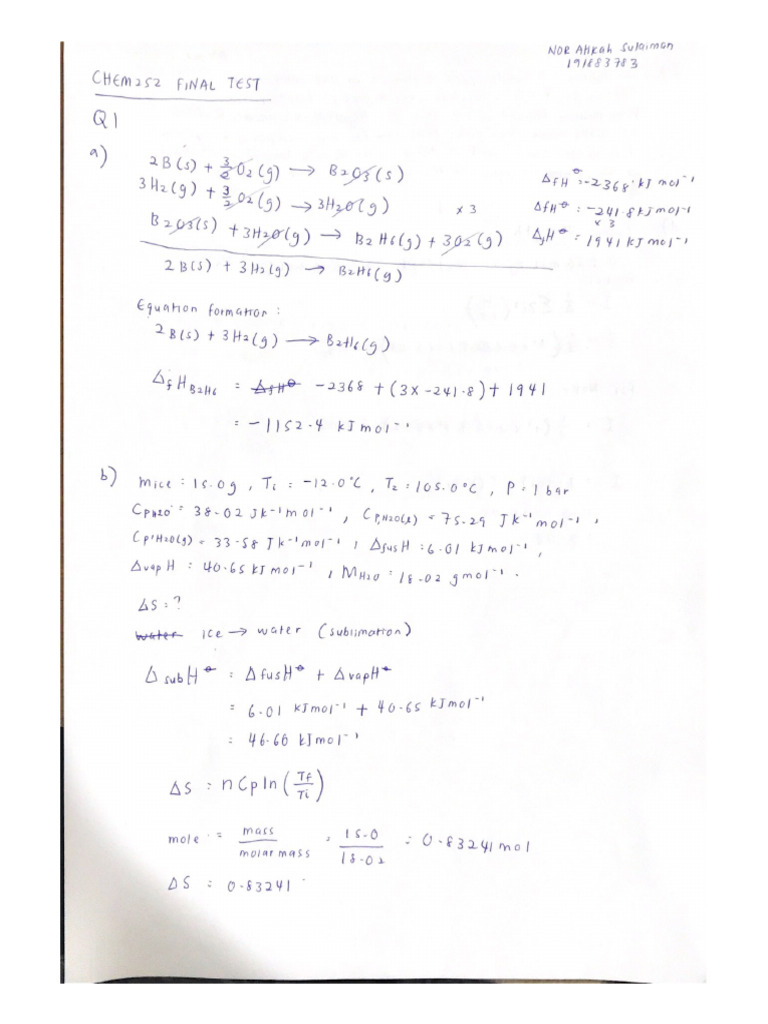 NOR Atikah Sulaiman
191883783
CHEM252 FINAL TEST
Q1
a)
2B(s) + 3/2 O2(g) → B2O3(s) ΔfH⦵ = -2368 kJ mol⁻¹
3H2(g) + 3/2 O2(g) → 3H2O(g) × 3 ΔfH⦵ = -241.8 kJ mol⁻¹
× 3
B2O3(s) + 3H2O(g) → B2H6(g) + 3O2(g) ΔfH⦵ = 1941 kJ mol⁻¹
2B(s) + 3H2(g) → B2H6(g)
Equation formation :
2B(s) + 3H2(g) → B2H6(g)
ΔfH B2H6 = ΔfH⦵ -2368 + (3x -241.8) + 1941
= -1152.4 kJ mol⁻¹
b) mice = 15.0g , Ti = -12.0°C , T2 = 105.0°C , P = 1 bar
CpH2O = 38.02 JK⁻¹mol⁻¹ , Cp,H2O(l) = 75.29 JK⁻¹mol⁻¹ ,
Cp,H2O(g) = 33.58 JK⁻¹mol⁻¹ , ΔfusH = 6.01 kJmol⁻¹ ,
ΔvapH = 40.65 kJmol⁻¹ , MH2O = 18.02 gmol⁻¹ .
ΔS = ?
water ice → water (sublimation)
ΔsubH⦵ = ΔfusH⦵ + ΔvapH⦵
= 6.01 kJmol⁻¹ + 40.65 kJmol⁻¹
= 46.66 kJmol⁻¹
ΔS = nCpln(Tf/Ti)
mole = mass/molar mass = 15.0/18.02 = 0.83241 mol
ΔS = 0.83241